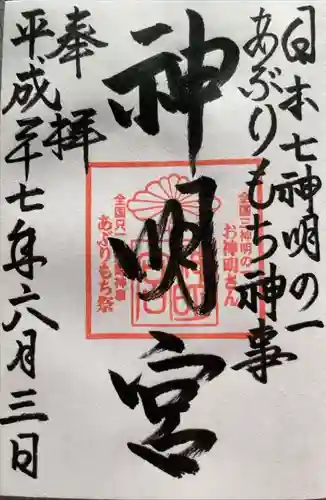 日本七神明の一
あぶりもち神事
神明宮
奉拝
平成二十七年六月三日
全国三神明の
お神明さん
全国只一
あぶりもち祭